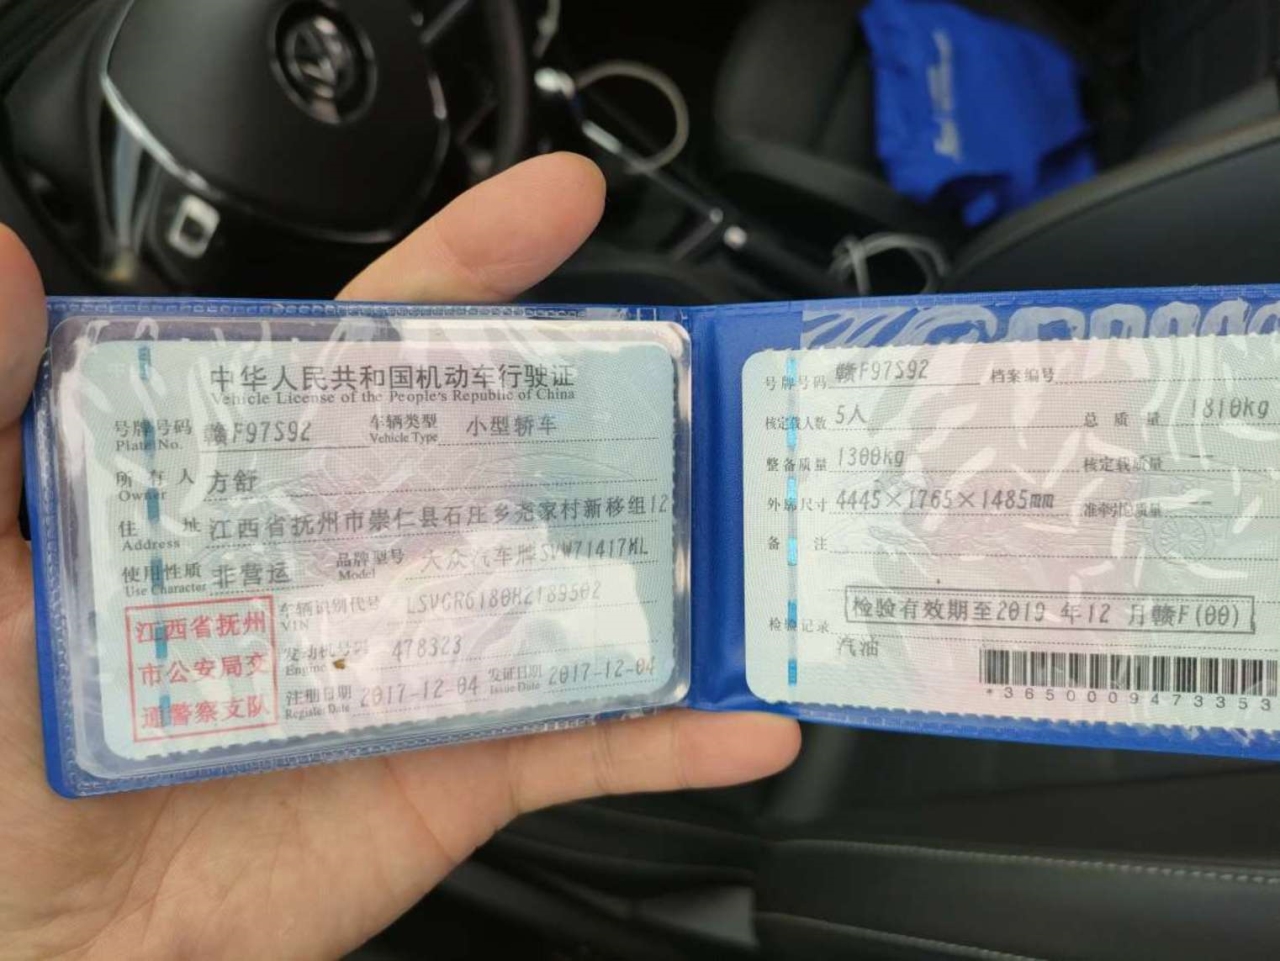 中华人民共和国机动车行驶证
Vehicle License of the People's Republic of China
号牌号码 赣F97S92 车辆类型 小型轿车
Plate No. Vehicle Type
所有人 方舒
Owner
住址 江西省抚州市崇仁县石庄乡尧家村新移组12
Address
使用性质 非营运 品牌型号 大众汽车牌SVW71417ML
Use Character Model
江西省抚州
市公安局交
通警察支队
车辆识别代号
VIN
发动机号码 478323
Engine
注册日期 2017-12-04 发证日期 2017-12-04
Register Date Issue Date
号牌号码 赣F97S92 档案编号
核定载人数 5人 总质量 1810kg
整备质量 1300kg 核定载质量 —
外廓尺寸 4445×1765×1485mm 准牵引总质量 —
备注
检验有效期至2019年12月赣F(00)
检验记录
汽油
*3650009473353